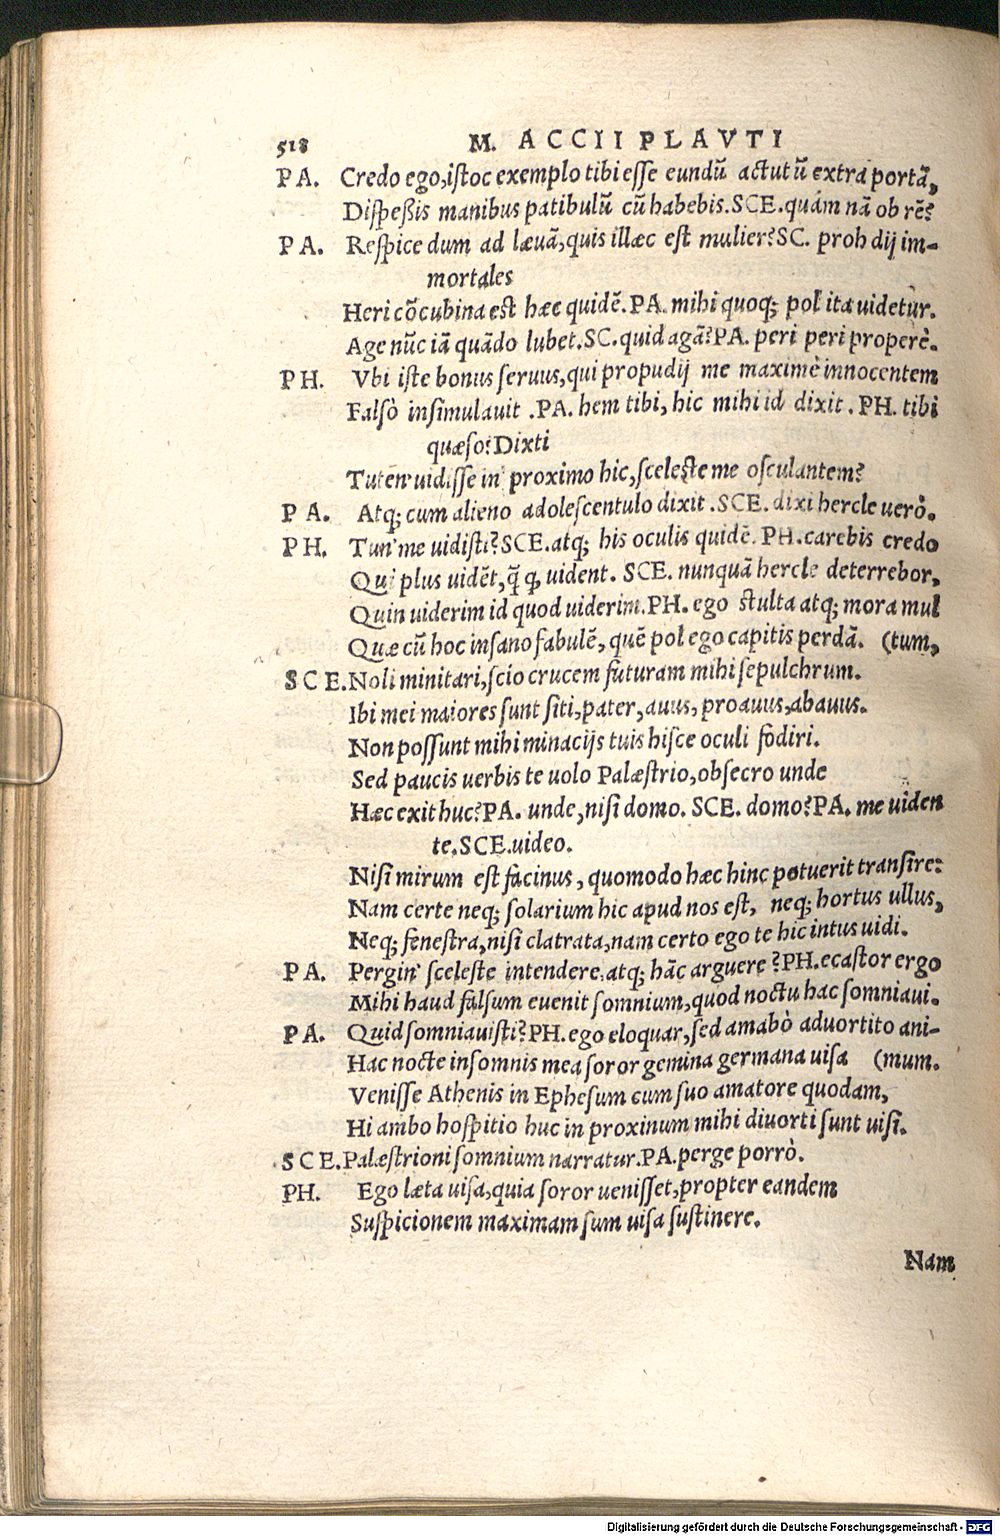 518 M. ACCII PLAVTI
PA. Credo ego, istoc exemplo tibi esse eundũ actutũ extra portã,
Dispeßis manibus patibulũ cũ habebis. SCE. quám nã ob rẽ?
PA. Respice dum ad læuã, quis illæc est mulier? SC. proh dij im-
mortales
Heri cõcubina est hæc quidẽ. PA. mihi quoq; pol ita uidetur.
Age nũc iã quãdo lubet. SC. quid agã? PA. peri peri properè.
PH. Vbi iste bonus seruus, qui propudij me maximè innocentem
Falsò insimulauit. PA. hem tibi, hic mihi id dixit. PH. tibi
quæso? Dixti
Tuten' uidisse in proximo hic, sceleste me osculantem?
PA. Atq; cum alieno adolescentulo dixit. SCE. dixi hercle uerò.
PH. Tun' me uidisti? SCE. atq; his oculis quidẽ. PH. carebis credo
Qui plus uidẽt, q̃ q, uident. SCE. nunquã hercle deterrebor,
Quin uiderim id quod uiderim. PH. ego stulta atq; mora mul
Quæ cũ hoc insano fabulẽ, quẽ pol ego capitis perdã. (tum,
SCE. Noli minitari, scio crucem futuram mihi sepulchrum.
Ibi mei maiores sunt siti, pater, auus, proauus, abauus.
Non possunt mihi minacijs tuis hisce oculi fodiri.
Sed paucis uerbis te uolo Palæstrio, obsecro unde
Hæc exit huc? PA. unde, nisi domo. SCE. domo? PA. me uiden
te. SCE. uideo.
Nisi mirum est facinus, quomodo hæc hinc potuerit transire:
Nam certe neq; solarium hic apud nos est, neq; hortus ullus,
Neq; fenestra, nisi clatrata, nam certo ego te hic intus uidi.
PA. Pergin' sceleste intendere, atq; hãc arguere? PH. ecastor ergo
Mihi haud falsum euenit somnium, quod noctu hac somniaui.
PA. Quid somniauisti? PH. ego eloquar, sed amabò aduortito ani-
Hac nocte insomnis mea soror gemina germana uisa (mum.
Venisse Athenis in Ephesum cum suo amatore quodam,
Hi ambo hospitio huc in proxinum mihi diuorti sunt uisi.
SCE. Palæstrioni somnium narratur. PA. perge porrò.
PH. Ego læta uisa, quia soror uenisset, propter eandem
Suspicionem maximam sum uisa sustinere.
Nam
Digitalisierung gefördert durch die Deutsche Forschungsgemeinschaft - DFG